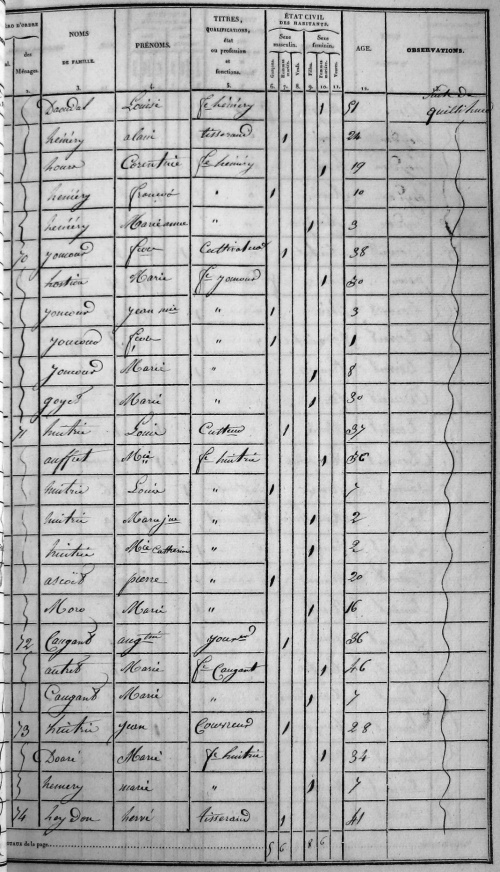 D'ORDRE
des
Ménages.
NOMS
DE FAMILLE.
PRÉNOMS.
TITRES,
QUALIFICATIONS,
état
ou profession
et
fonctions.
ÉTAT CIVIL
DES HABITANTS.
Sexe masculin.
Sexe féminin.
Garçons.
Hommes mariés.
Veufs.
Filles.
Femmes mariées.
Veuves.
AGE.
OBSERVATIONS.
3. 4. 5. 6. 7. 8. 9. 10. 11. 12.
Daoudal Louise fe héméry 1 51 Suite de
quilihuec
héméry alain tisserand 1 24
Corentine fe héméry 1 19
héméry francois " 1 10
héméry Marie anne " 1 3
70 youcoud Cultivateur 1 38
Marie fe youcoud 1 30
youcoud jean " 1 3
youcoud " 1 1
youcoud Marie " 1 8
goyet Marie " 1 30
71 huitrie Louis Cultiv 1 37
auffret Mie fe huitrie 1 36
huitrie Louis " 1 7
huitrie Marie jne " 1 2
huitrie Mie Catherine " 1 2
ascoët pierre " 1 20
Moro Marie " 1 16
72 Caugant augtin jour 1 36
autret Marie fe Caugant 1 46
Caugant Marie " 1 7
73 huitrie jean Couvreur 1 28
Doaré Marie fe huitrie 1 34
hemery marie " 1 7
74 heydon hervé tisserand 1 41
de la page 5 6 8 6